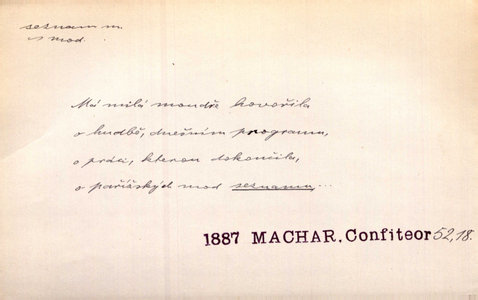 seznam m.
s mod.
Má milá moudře hovořila
o hudbě, dnešním programu,
o práci, kterou dokončila,
o pařížských mod seznamu,...
1887 MACHAR, Confiteor 52,18.